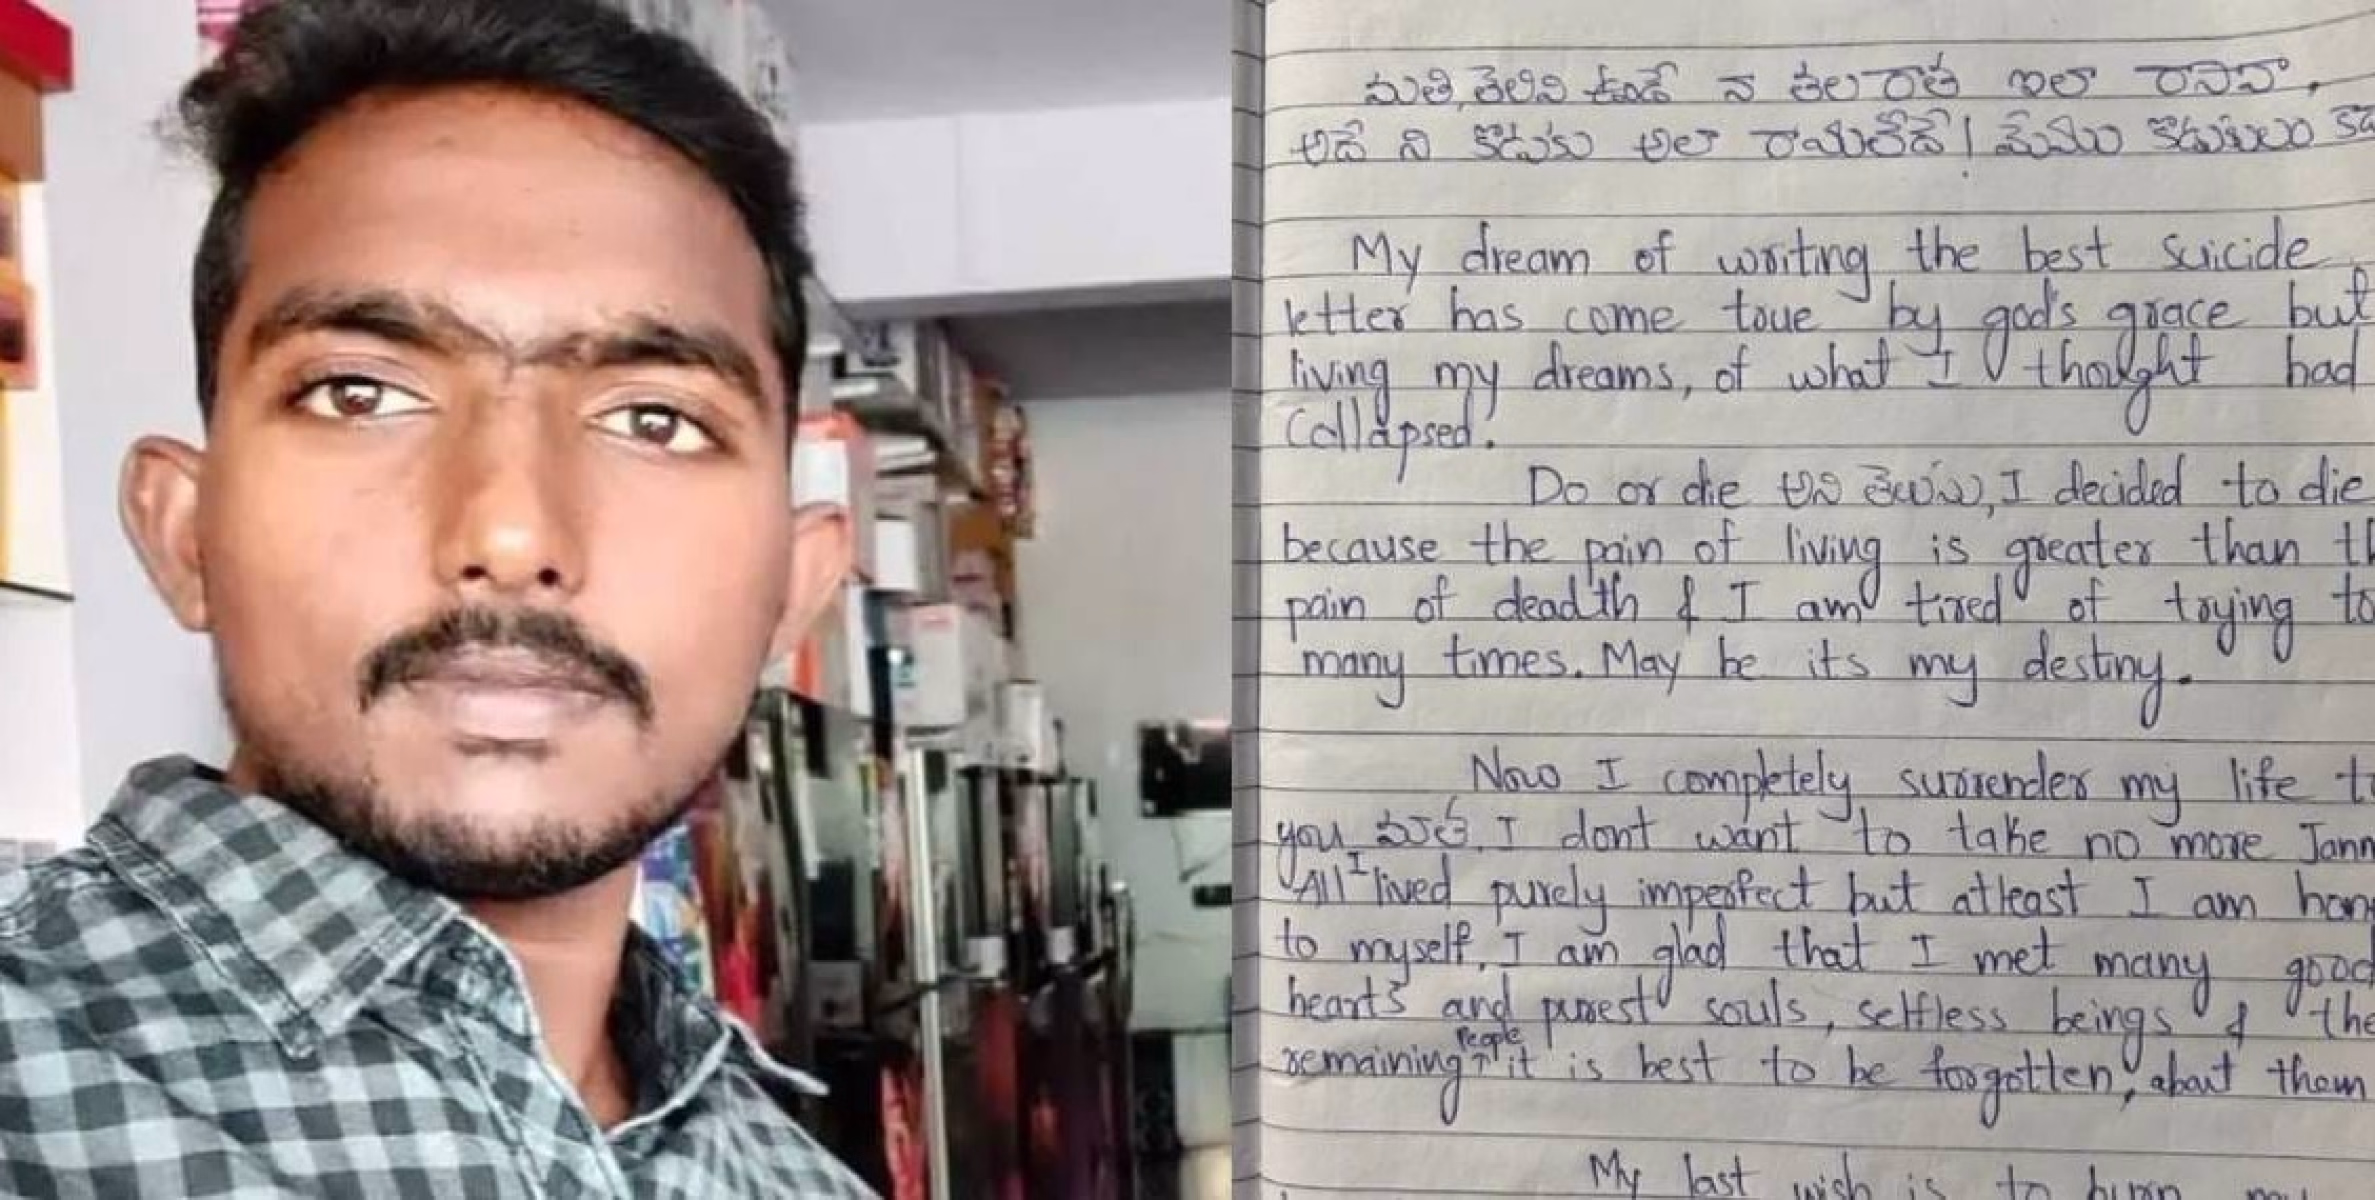 మతి, తెలివి ఉండే న తల రాత ఇలా రాసినా,
అదే ని కొడుకు అలా రాయలేదే! మేము కొడుకులం
My dream of writing the best suicide
letter has come true by god's grace but
living my dreams, of what I thought had
Collapsed.
Do or die అని తెలుసు, I decided to die
because the pain of living is greater than
pain of deadth & I am tired of trying
many times. May be its my destiny.
Now I completely surrender my life
you I dont want to take no more
All I lived purely imperfect but atleast I am
to myself. I am glad that I met many good
hearts and purest souls, selfless beings & the
remaining People it is best to be forgotten, about them
My last wish is to burn my